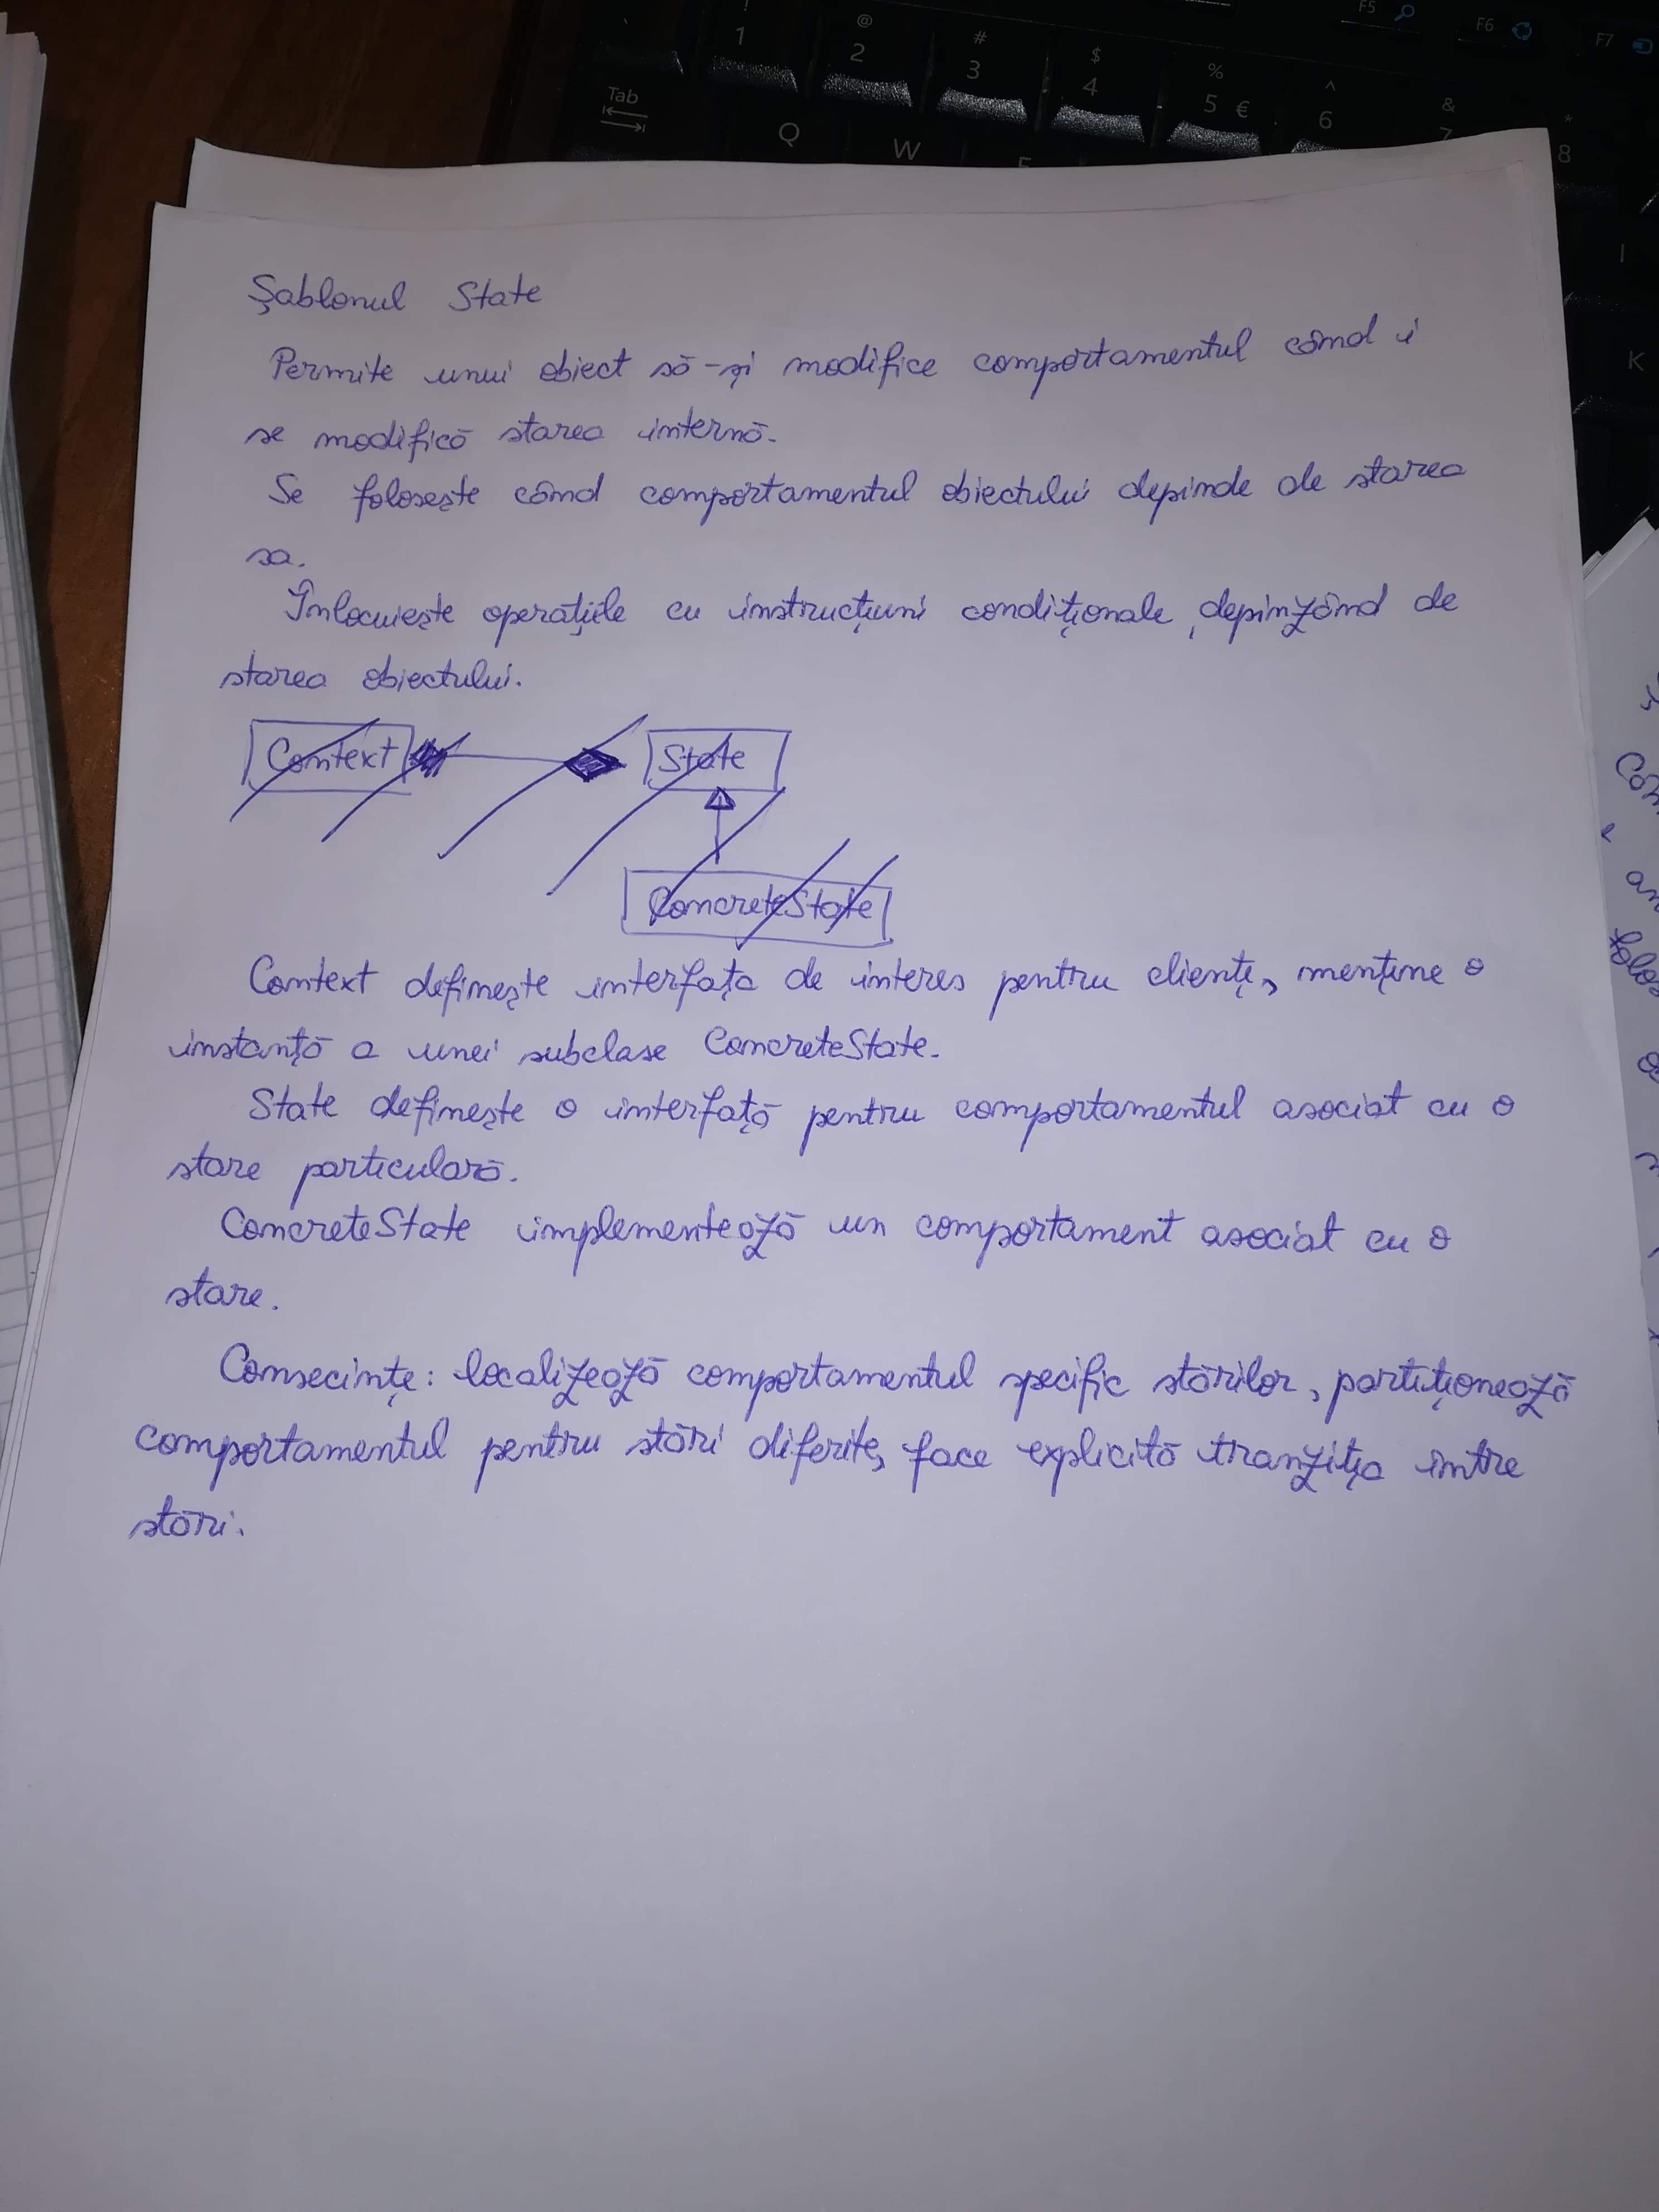 ! 1
@ 2
# 3
$ 4
% 5 €
^ 6
& 7
* 8
F5
F6
F7
Tab
Q
W
I
K
Șablonul State
Permite unui obiect să-și modifice comportamentul când i
se modifică starea internă.
Se folosește când comportamentul obiectului depinde de starea
sa.
Înlocuiește operațiile cu instrucțiuni condiționale, depinzând de
starea obiectului.
Context State
ConcreteState
Context definește interfața de interes pentru clienți, menține o
instanță a unei subclase ConcreteState.
State definește o interfață pentru comportamentul asociat cu o
stare particulară.
ConcreteState implementează un comportament asociat cu o
stare.
Consecințe: localizează comportamentul specific stărilor, partiționează
comportamentul pentru stări diferite, face explicită tranziția între
stări.